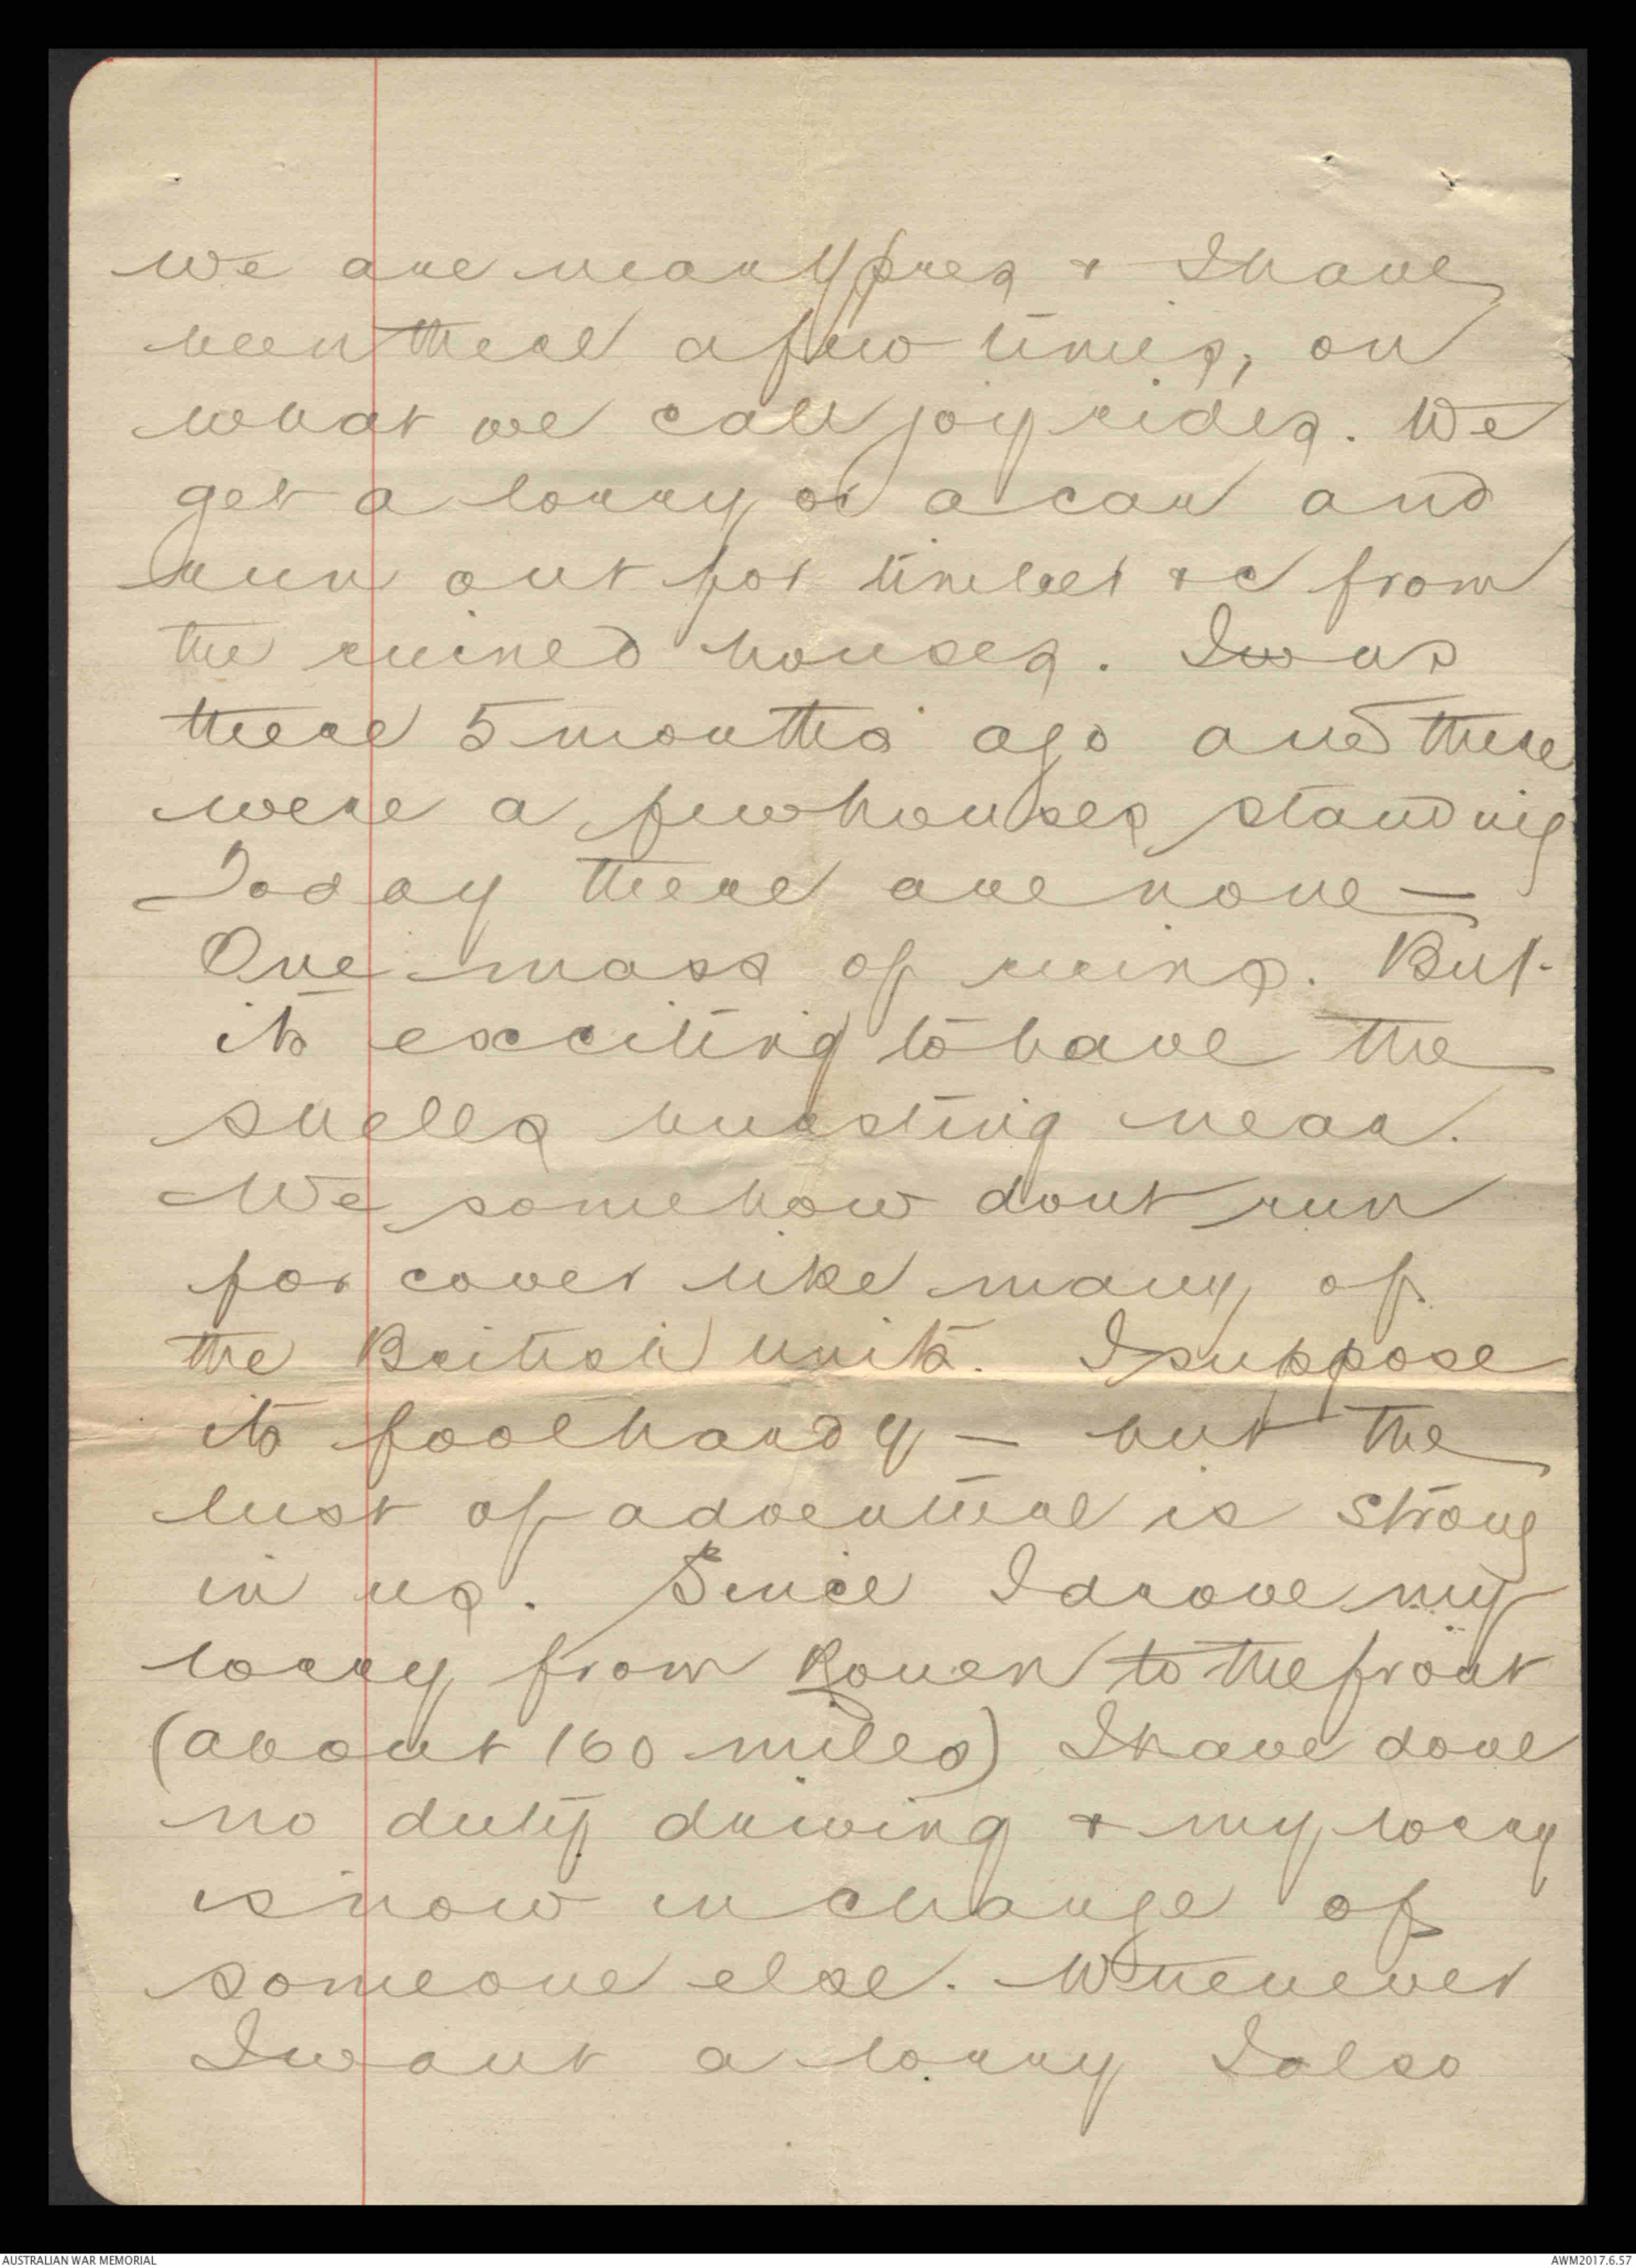 We are near Ypres & I have
been there a few times, on
what we call joy rides. We
get a lorry or a car and
run out for timber &c from
the ruined houses. I was
there 5 months ago and there
were a few houses standing
Today there are none —
One mass of ruins. But
its exciting to have the
shells bursting near.
We somehow dont run
for cover like many of
the British units. I suppose
its foolhardy — but the
lust of adventure is strong
in us. Since I drove my
lorry from Rouen to the front
(about 160 miles) I have done
no duty driving & my lorry
is now in charge of
someone else. Whenever
I want a lorry I also
AUSTRALIAN WAR MEMORIAL
AWM2017.6.57